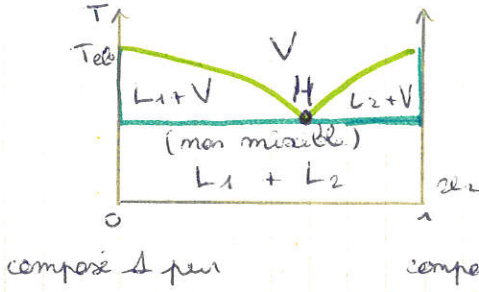 T
V
Teb
L1+V
H
L2+V
(non miscible)
L1 + L2
0
1
x2
composé 1 pur
compo